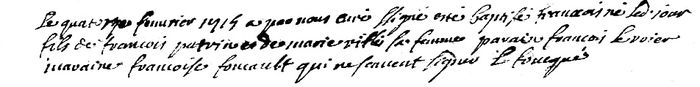 Le quatre feuvrier 1715 a par nous curé ssigné esté baptisé francois né led jour
fils de francois patrin et de marie sa femme parain francois Levoier
maraine francoise foucault qui ne scavent signer